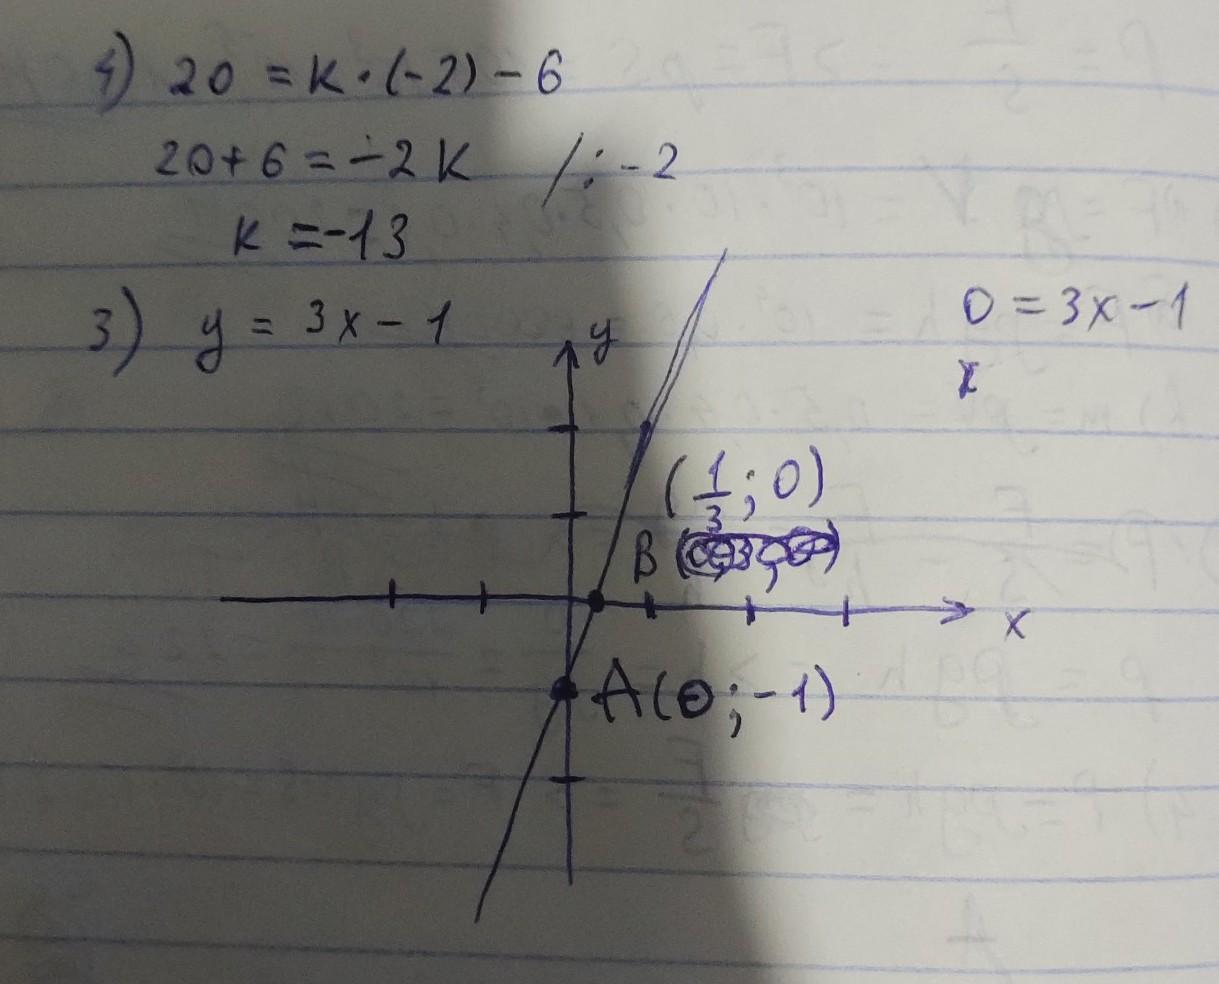 4) 20 = k · (-2) - 6
20 + 6 = -2k /: -2
k = -13
3) y = 3x - 1
0 = 3x - 1
x
y
(1/3; 0)
B
x
A(0; -1)